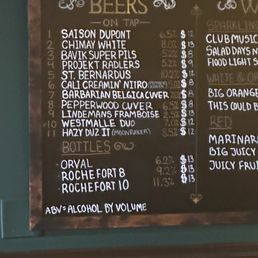 BEERS
ON TAP
1 SAISON DUPONT 6.5% $12
2 CHIMAY WHITE 8.0%
3 BAVIK SUPER PILS
4 PROJEKT RADLERS
5 ST. BERNARDUS 10.2%
6 CALI CREAMIN' NITRO
7 BARBARIAN BELGICA CUVER
8 PEPPERWOOD CUVER 6.5% $8
9 LINDEMANS FRAMBOISE
10 WESTMALLE DUO 7.0%
11 HAZY DUZ IT (MOONRAKER)
BOTTLES
· ORVAL 6.2% $13
· ROCHEFORT 8 9.2% $13
· ROCHEFORT 10 11.3% $13
ABV= ALCOHOL BY VOLUME
SPARKLIN
CLUB MUSIC
SALAD DAYS N
FOOD LIGHT S
WHITE & O
BIG ORANGE
THIS COULD B
RED
MARINARA
BIG JUICY
JUICY FRU